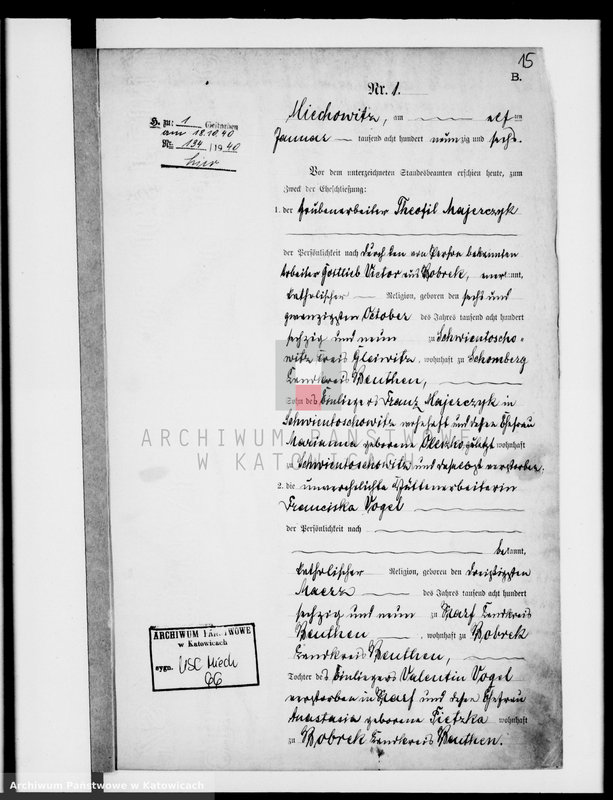 15
B.
Nr. 1.
H. zu: 1 Gestorben
am 18.10.40
Nr. 134/1940
hier
Miechowitz, am elf ten
Januar tausend acht hundert neunzig und sechs.
Vor dem unterzeichneten Standesbeamten erschien heute, zum
Zweck der Eheschließung:
1. der Grubenarbeiter Theofil Majerczyk
der Persönlichkeit nach durch den von Person bekannten
Arbeiter Gottlieb Victor aus Bobrek, anerkannt,
katholischer Religion, geboren den sechs und
zwanzigsten October des Jahres tausend acht hundert
sechzig und neun zu Schwientoscho=
witz Kreis Gleiwitz, wohnhaft zu Schomberg
Landkreis Beuthen,
Sohn des Einliegers Franz Majerczyk in
Schwientoschowitz wohnhaft und dessen Ehefrau
Marianna geborene Oleszko zuletzt wohnhaft
zu Schwientoschowitz und daselbst verstorben.
2. die unverehelichte Hüttenarbeiterin
Franciska Vogel
der Persönlichkeit nach
bekannt,
katholischer Religion, geboren den dreißigsten
Maerz des Jahres tausend acht hundert
sechzig und neun zu Karf Landkreis
Beuthen, wohnhaft zu Bobrek
Landkreis Beuthen,
Tochter des Einliegers Valentin Vogel
verstorben in Karf und dessen Ehefrau
Anastasia geborene Pietzka wohnhaft
zu Bobrek Landkreis Beuthen.
ARCHIWUM PAŃSTWOWE
W KATOWICACH
ARCHIWUM PAŃSTWOWE
w Katowicach
sygn. USC Miech
66
Archiwum Państwowe w Katowicach